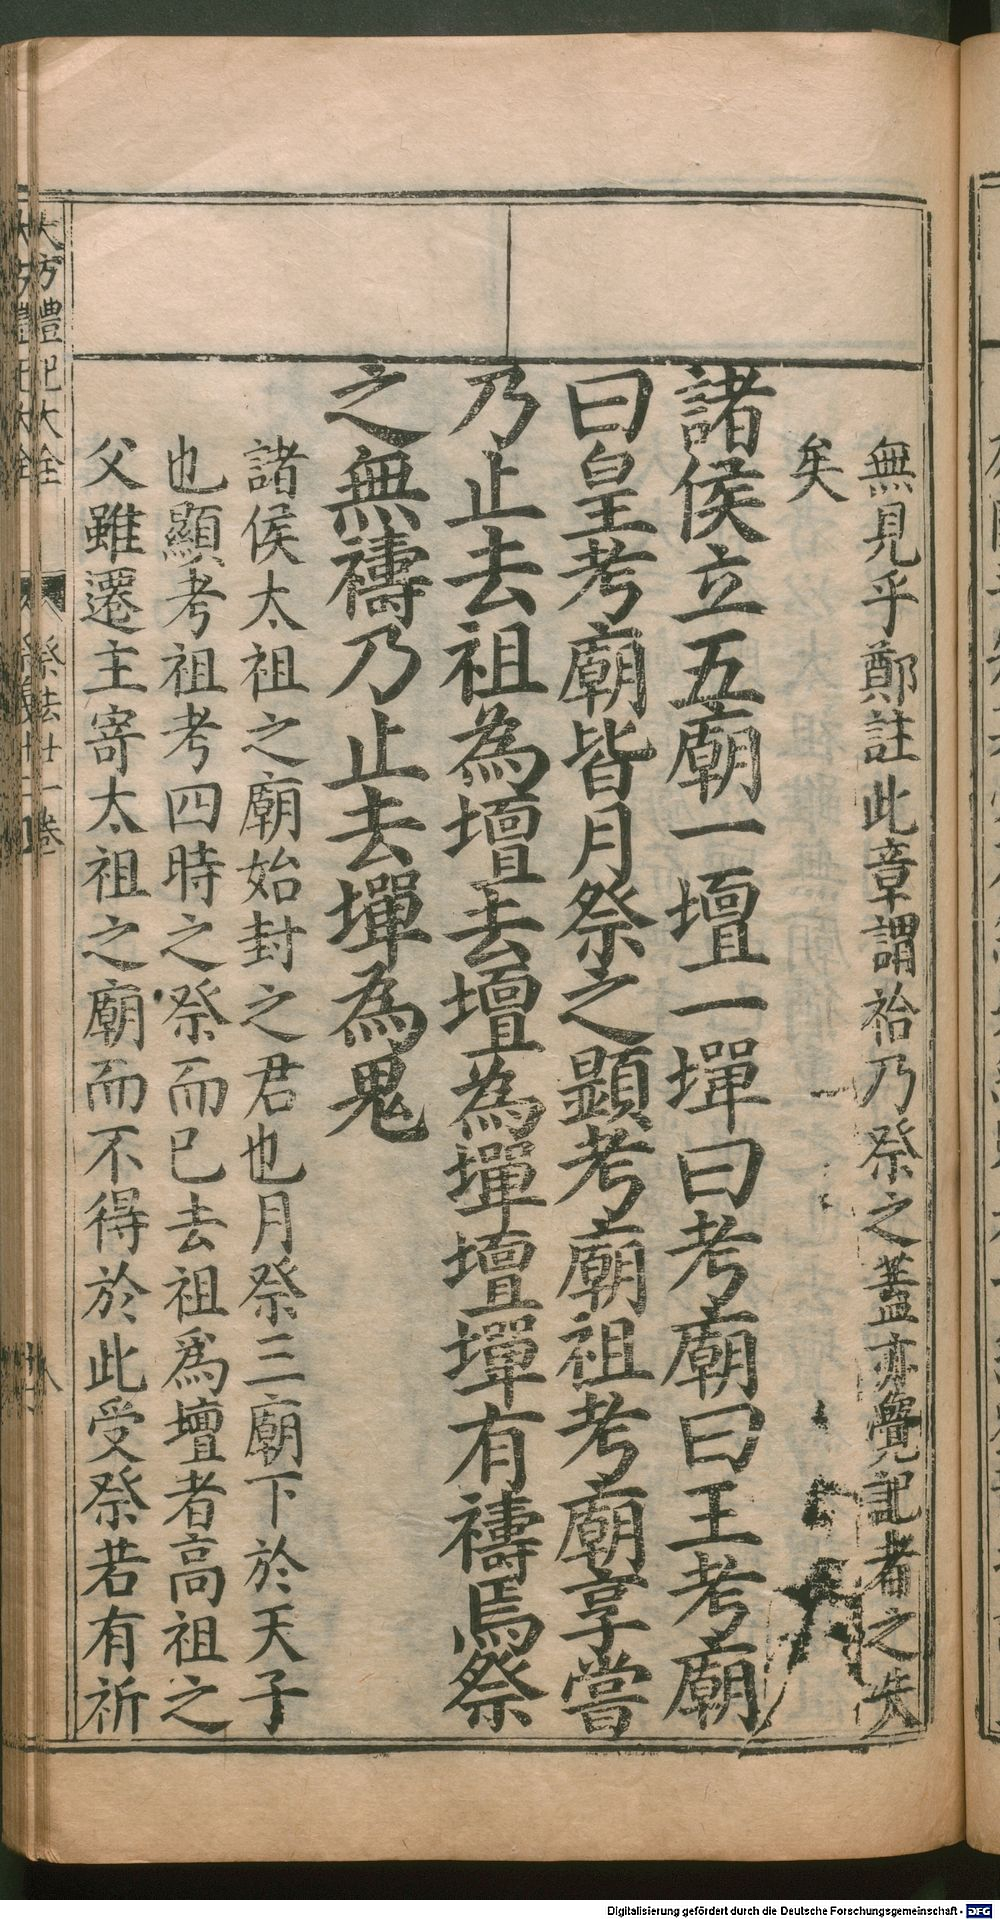 無見乎鄭註此章謂祫乃祭之蓋亦覺記者之失
矣
諸侯立五廟一壇一墠曰考廟曰王考廟
曰皇考廟皆月祭之顯考廟祖考廟享嘗
乃止去祖為壇去壇為墠壇墠有禱焉祭
之無禱乃止去墠為鬼
諸侯太祖之廟始封之君也月祭三廟下於天子
也顯考祖考四時之祭而已去祖爲壇者高祖之
父雖遷主寄太祖之廟而不得於此受祭若有祈
大方禮記大全 祭法廿一卷 八
Digitalisierung gefördert durch die Deutsche Forschungsgemeinschaft - DFG